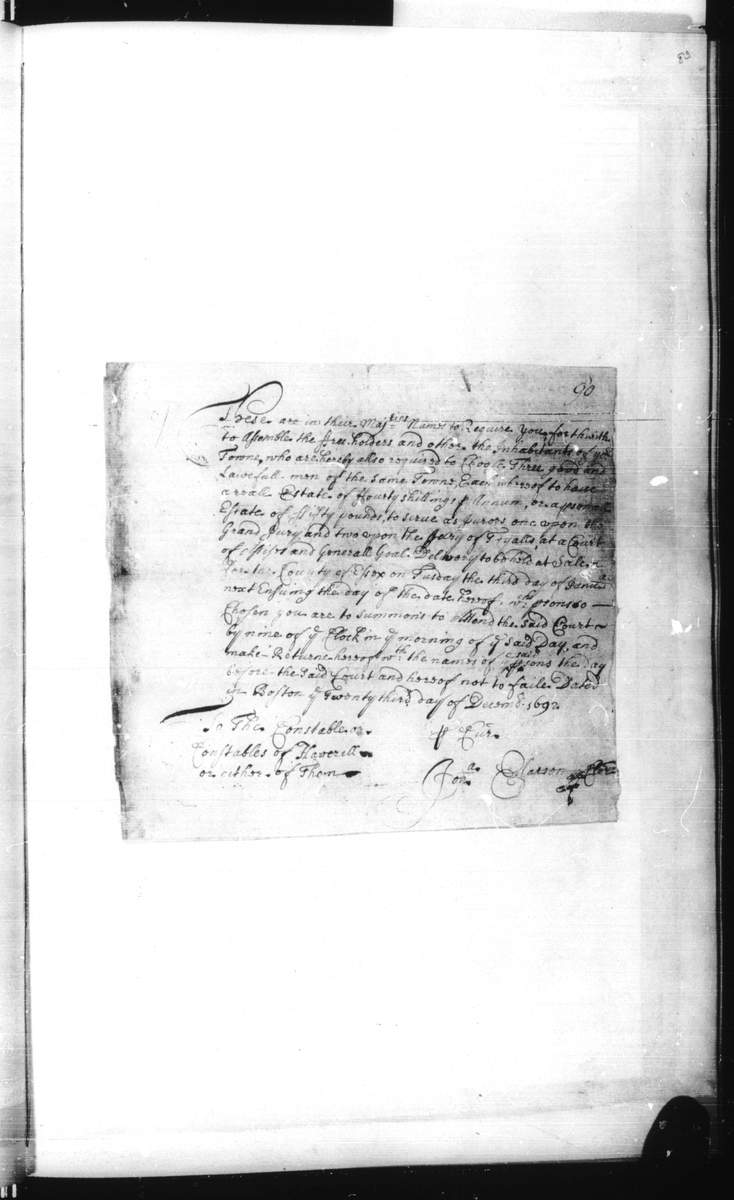 83
90
These are in their Maj.ties Names to Require you forthwith
to Assemble the free holders and other the Inhabitants of yor
Towne, who are hereby also required to Choose Three good and
Lawefull men of the same Towne Each whereof to have
a reall Estate of fourty shillings p Annum, or a psonall
Estate of fifty pounds, to serve as Jurors one upon the
Grand Jury and two upon the Jury of Tryalls, at a Court
of Assizes and Generall Goal Delivery to be held at Salem
for the County of Essex on Tusday the third day of Janua
next Ensuing the day of the date hereof, wch psons so
Chosen you are to summons to Attend the said Court
by nine of ye Clock in ye morning of ye said Day, and
make Returne hereof wth the names of ye said psons the day
before the said Court and hereof not to faile. Dated
in Boston ye Twenty third day of Decmbr. 1692
To The Constable or p Cur
Constables of Haverill
or either of Them Jona Elatson Cler